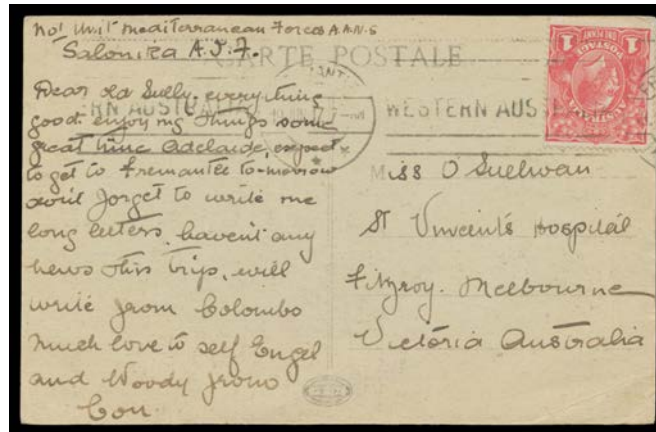 No 1 Unit Mediterranean Forces A.A.N.S
Salonika A.I.F.
CARTE POSTALE
Dear old Sully, everything
good. enjoying things some
great time Adelaide, expect
to get to Fremantle to-morrow
don't forget to write me
long letters, haven't any
news this trip, will
write from Colombo
much love to self Engel
and Woody from
Con
WESTERN AUST
ONE PENNY
POSTAGE
AUSTRALIA
1
1
Miss O'Sullivan
St Vincent's Hospital
Fitzroy. Melbourne
Victoria Australia